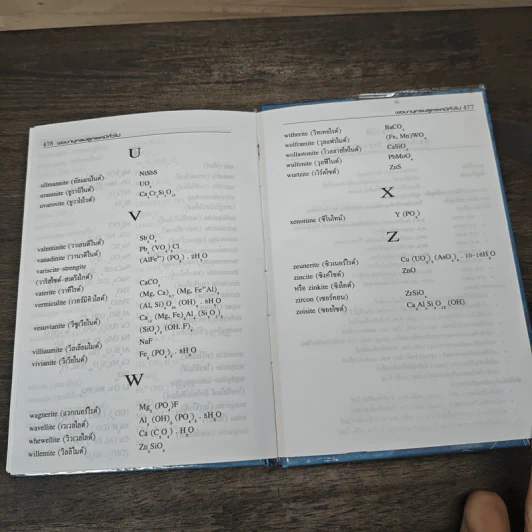 476 พจนานุกรมธรณีวิทยา
U
ullmannite (อัลแมนไนต์) NiSbS
uraninite (ยูรานิไนต์) UO₂
uvarovite (ยูวาโรไวต์) Ca₃Cr₂Si₃O₁₂
V
valentinite (วาเลนทิไนต์) Sb₂O₃
vanadinite (วานาดิไนต์) Pb₅ (VO₄)₃Cl
variscite-strengite (AlFe³⁺) (PO₄) . 2H₂O
(วาริสไซต์-สเตร็งไกต์)
vaterite (วาทีไรต์) CaCO₃
vermiculite (เวอร์มิคิวไลต์) (Mg, Ca)₀.₃ (Mg, Fe³⁺Al)₃
(Al, Si)₄O₁₀ (OH)₂ . 8H₂O
vesuvianite (วิซูเวียไนต์) Ca₁₀ (Mg, Fe)₂ Al₄ (Si₂O₇)₂
(SiO₄)₅ (OH, F)₄
villiaumite (วิลเลียมไมต์) NaF
vivianite (วิเวียไนต์) Fe₃ (PO₄)₂ . 8H₂O
W
wagnerite (แวกเนอร์ไรต์) Mg₂ (PO₄)F
wavellite (เวเวลไลต์) Al₃ (OH)₃ (PO₄)₂ . 5H₂O
whewellite (วิวเวลไลต์) Ca (C₂O₄) . H₂O
willemite (วิลลิไมต์) Zn₂SiO₄
477
witherite (วิทเทอไรต์) BaCO₃
wolframite (วุลแฟรไมต์) (Fe, Mn)WO₄
wollastonite (โวลลาสโทไนต์) CaSiO₃
wulfenite (วุลฟีไนต์) PbMoO₄
wurtzite (เวิร์ตไซต์) ZnS
X
xenotime (ซีโนไทม์) Y (PO₄)
Z
zeunerite (ซิวเนอร์ไรต์) Cu (UO₂)₂ (AsO₄)₂ . 10-16H₂O
zincite (ซิงค์ไซต์) ZnO
หรือ zinkite (ซิงไคต์)
zircon (เซอร์คอน) ZrSiO₄
zoisite (ซอยไซต์) Ca₂Al₃Si₃O₁₂ (OH)